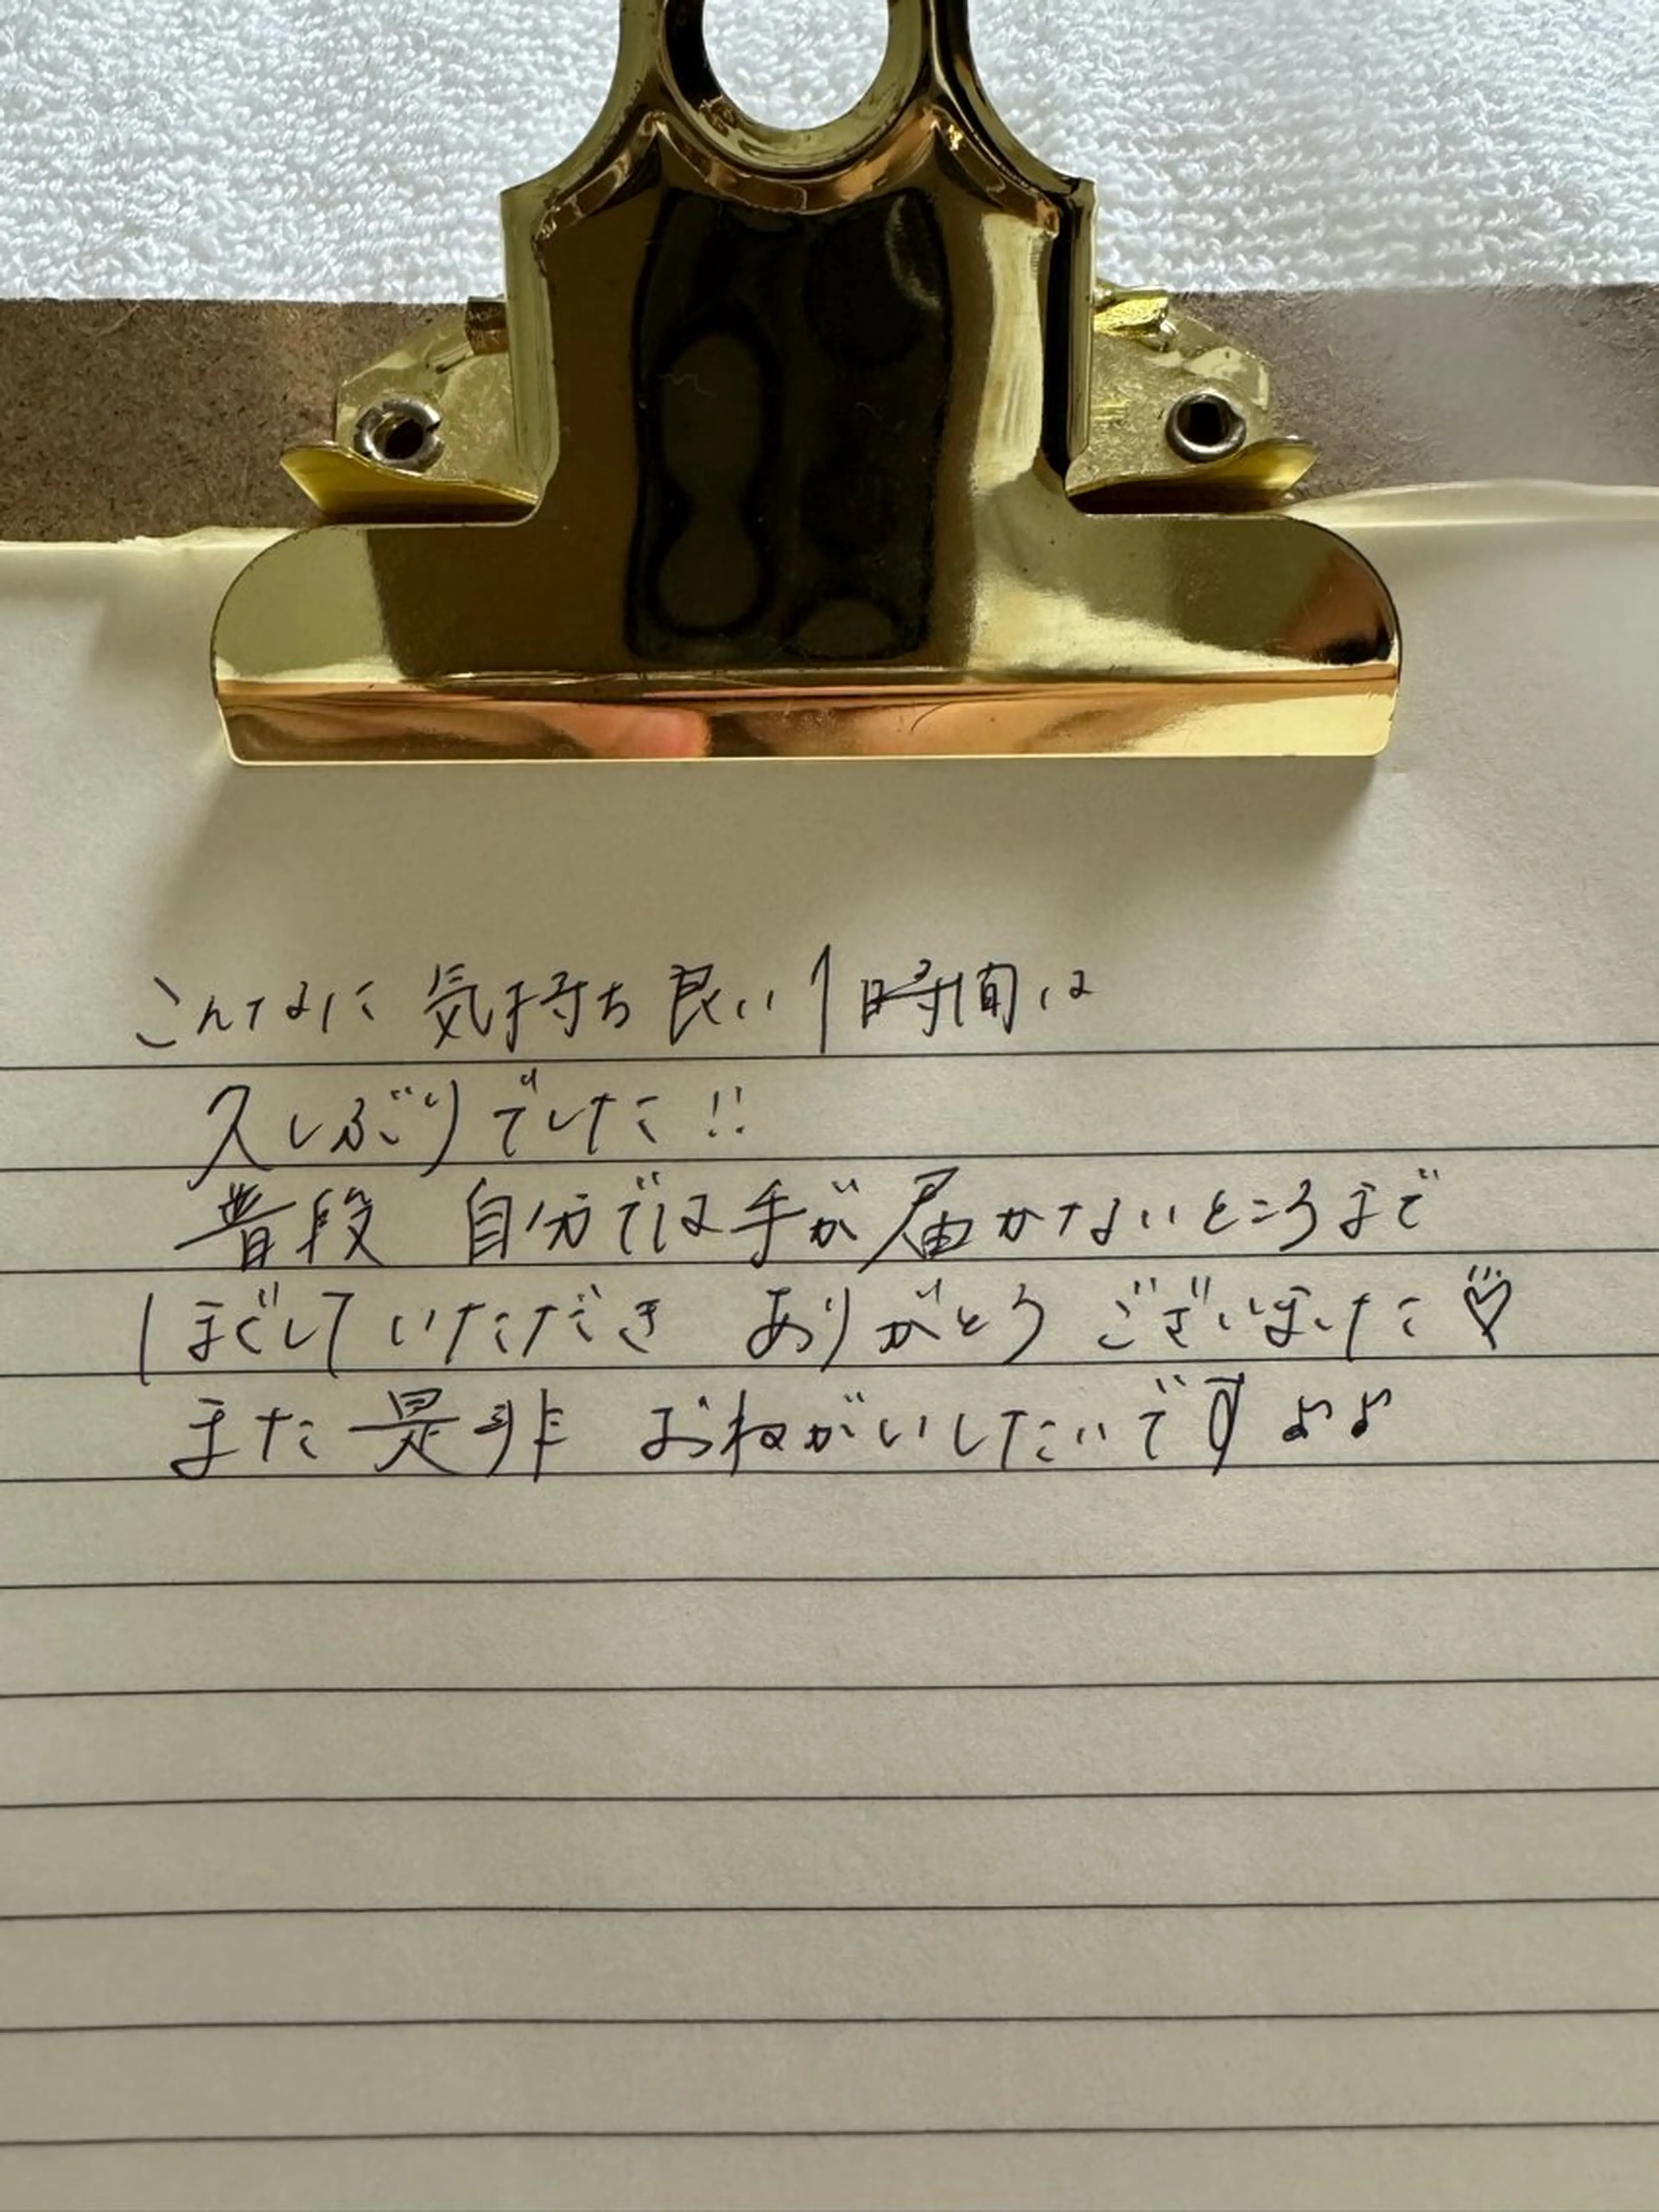 こんなに 気持ち良い 1時間は
久しぶりでした!!
普段 自分では手が届かないところまで
ほぐしていただき ありがとうございました♡
また是非 おねがいしたいです♪♪